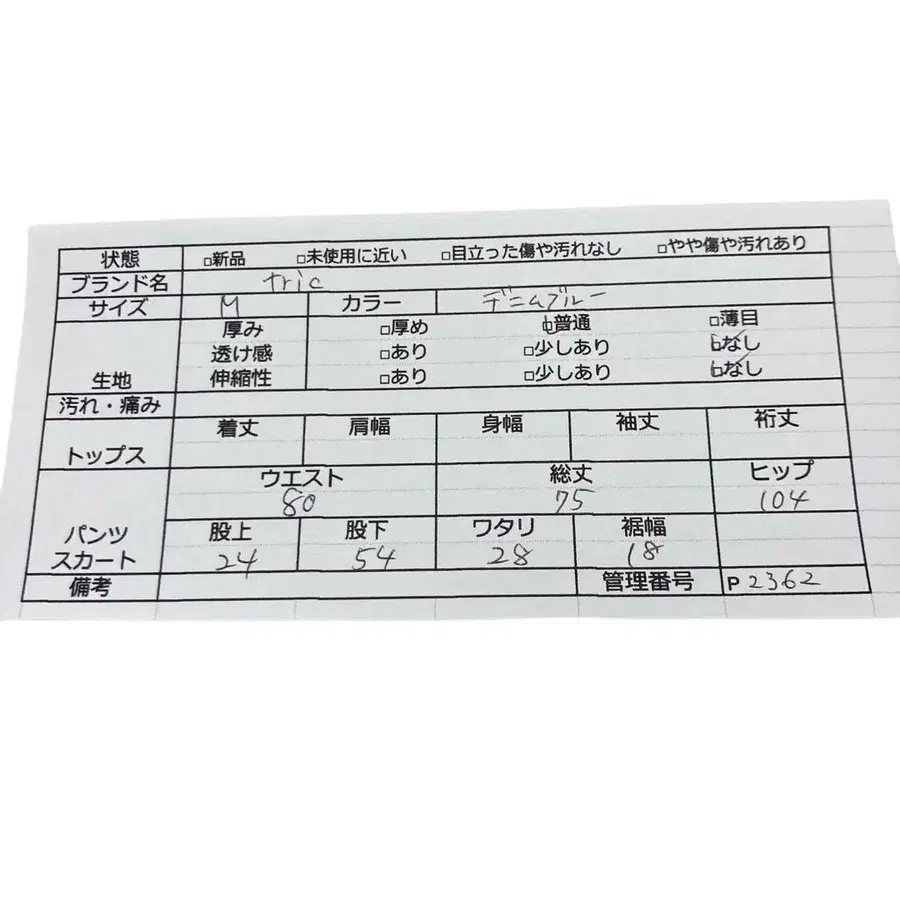 状態 □新品 □未使用に近い □目立った傷や汚れなし □やや傷や汚れあり
ブランド名 tric
サイズ M カラー デニムブルー
厚み □厚め □普通 □薄目
透け感 □あり □少しあり □なし
生地 伸縮性 □あり □少しあり □なし
汚れ・痛み
着丈 肩幅 身幅 袖丈 裄丈
トップス
ウエスト 総丈 ヒップ
80 75 104
パンツ 股上 股下 ワタリ 裾幅
スカート 24 54 28 18
備考 管理番号 P2362